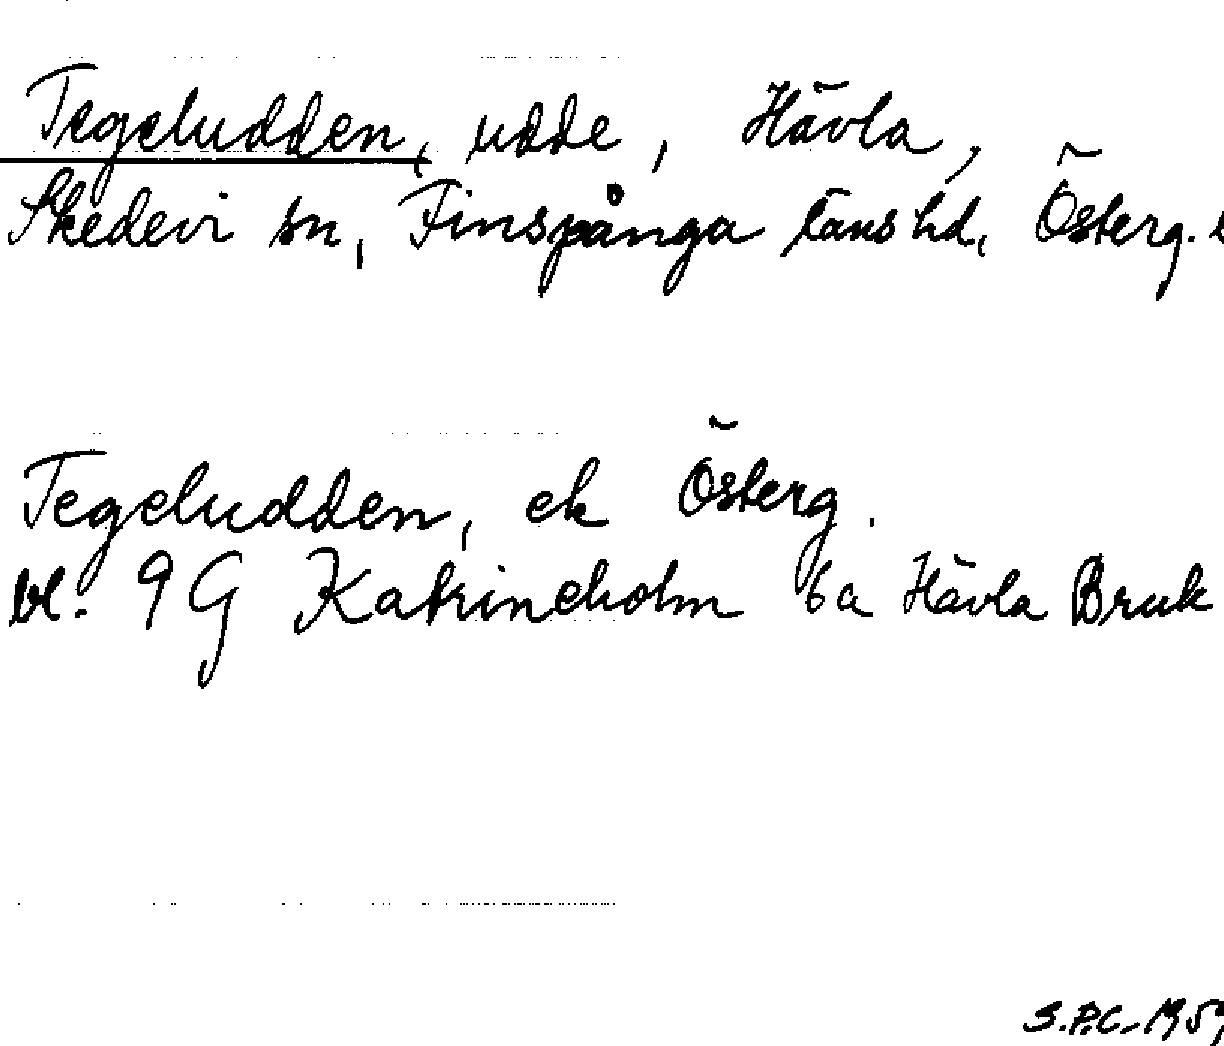 Tegeludden, udde, Hävla,
Skedevi sn, Finspånga läns hd, Österg. l
Tegeludden, ek Österg.
bl. 9G Katrineholm 6a Hävla Bruk
S.P.C.